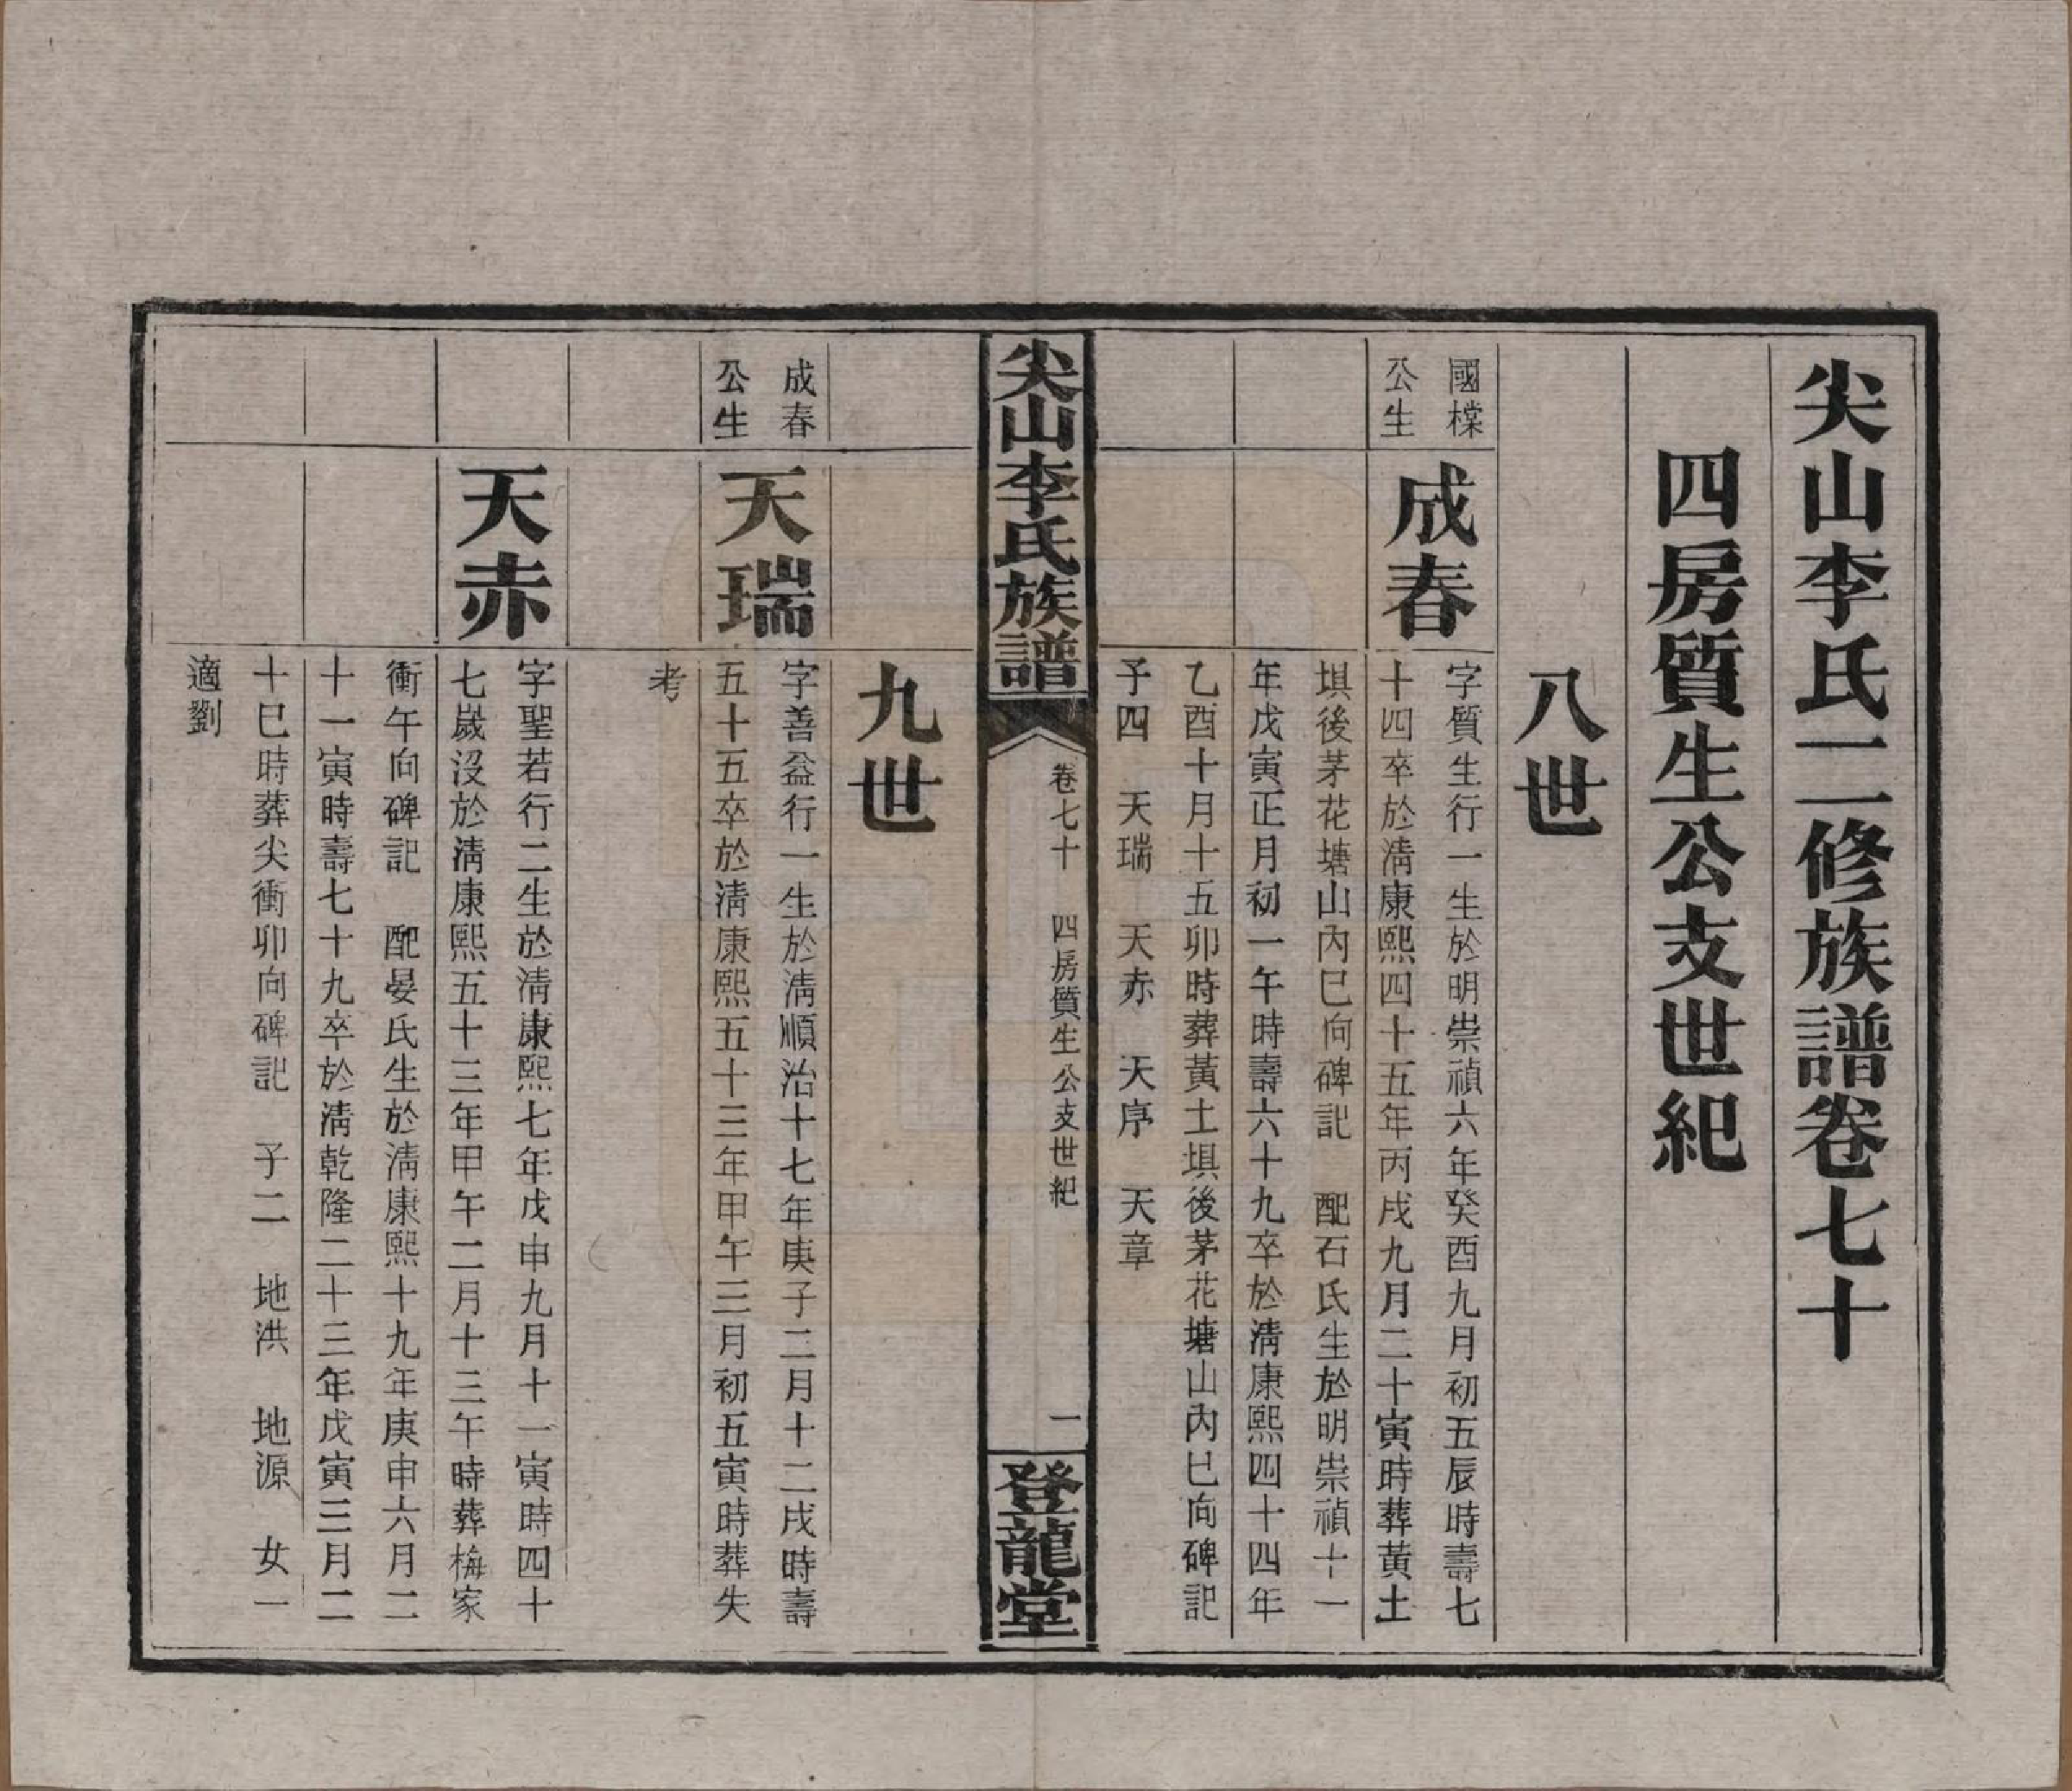 尖山李氏二修族譜卷七十
四房質生公支世紀
八世
國檪
公生
成春
字質生行一生於明崇禎六年癸酉九月初五辰時壽七
十四卒於淸康熙四十五年丙戌九月二十寅時葬黃土
塤後茅花塘山內巳向碑記 配石氏生於明崇禎十一
年戊寅正月初一午時壽六十九卒於淸康熙四十四年
乙酉十月十五卯時葬黃土塤後茅花塘山內巳向碑記
子四 天瑞 天赤 天序 天章
尖山李氏族譜
卷七十 四房質生公支世紀
一
登龍堂
九世
成春
公生
天瑞
字善益行一生於淸順治十七年庚子二月十二戌時壽
五十五卒於淸康熙五十三年甲午三月初五寅時葬失
考
天赤
字聖若行二生於淸康熙七年戊申九月十一寅時四十
七歲沒於淸康熙五十三年甲午二月十三午時葬梅家
衝午向碑記 配晏氏生於淸康熙十九年庚申六月二
十一寅時壽七十九卒於淸乾隆二十三年戊寅三月二
十巳時葬尖衝卯向碑記 子二 地洪 地源 女一
適劉